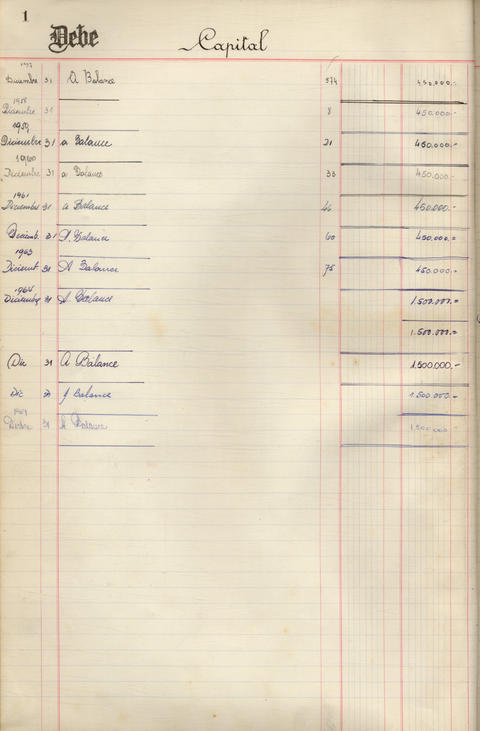 1
Debe Capital
1957
Diciembre 31 A Balance 374 450.000.-
1958
Diciembre 31 8 450.000.-
1959
Diciembre 31 a Balance 21 450.000.-
1960
Diciembre 31 a Balance 33 450.000.-
1961
Diciembre 31 a Balance 46 450.000.-
Diciemb. 31 A Balance 60 450.000.=
1963
Diciemb 31 A Balance 75 450.000.-
1964
Diciembre 31 A Balance 1.500.000.=
1.500.000.=
Dic 31 A Balance 1.500.000.-
Dic 31 Balance 1.500.000.-
31 A Balance 1.500.000